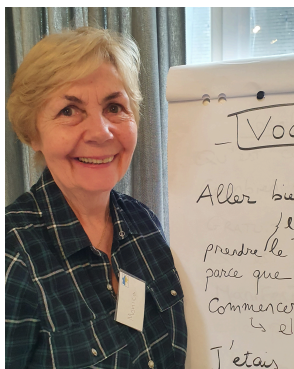 - Voc
Aller bie
prendre le
parce que
Commencer
↳ el
J'étais